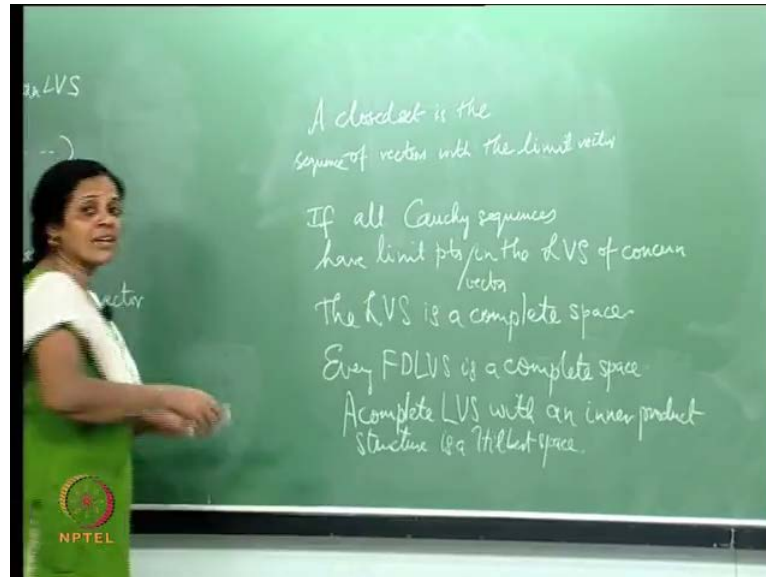 an LVS
--- )
vector
A closed set is the
sequence of vectors with the limit vector
If all Cauchy sequences
have limit pts/in the LVS of concern
vector
The LVS is a complete space
Every FDLVS is a complete space
A complete LVS with an inner product
structure is a Hilbert space.
NPTEL